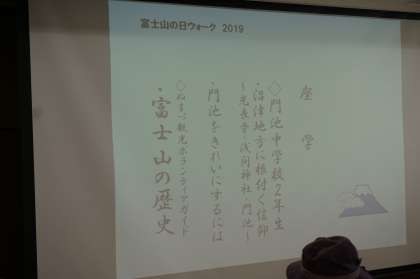 富士山の日ウォーク 2019
座学
◇門池中学校2年生
・沼津地方に根付く信仰
～光長寺・浅間神社・門池～
・門池をきれいにするには
◇ぬまづ観光ボランティアガイド
・富士山の歴史